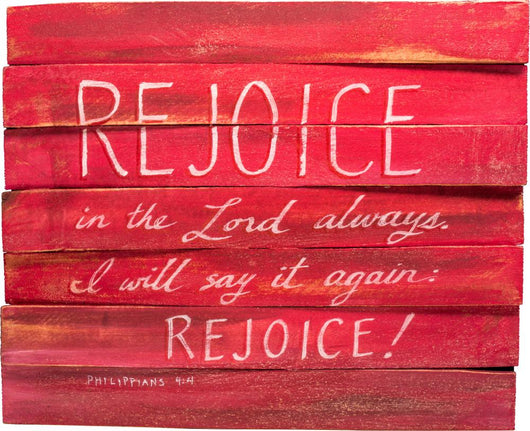 REJOICE
in the Lord always.
I will say it again:
REJOICE!
PHILIPPIANS 4:4